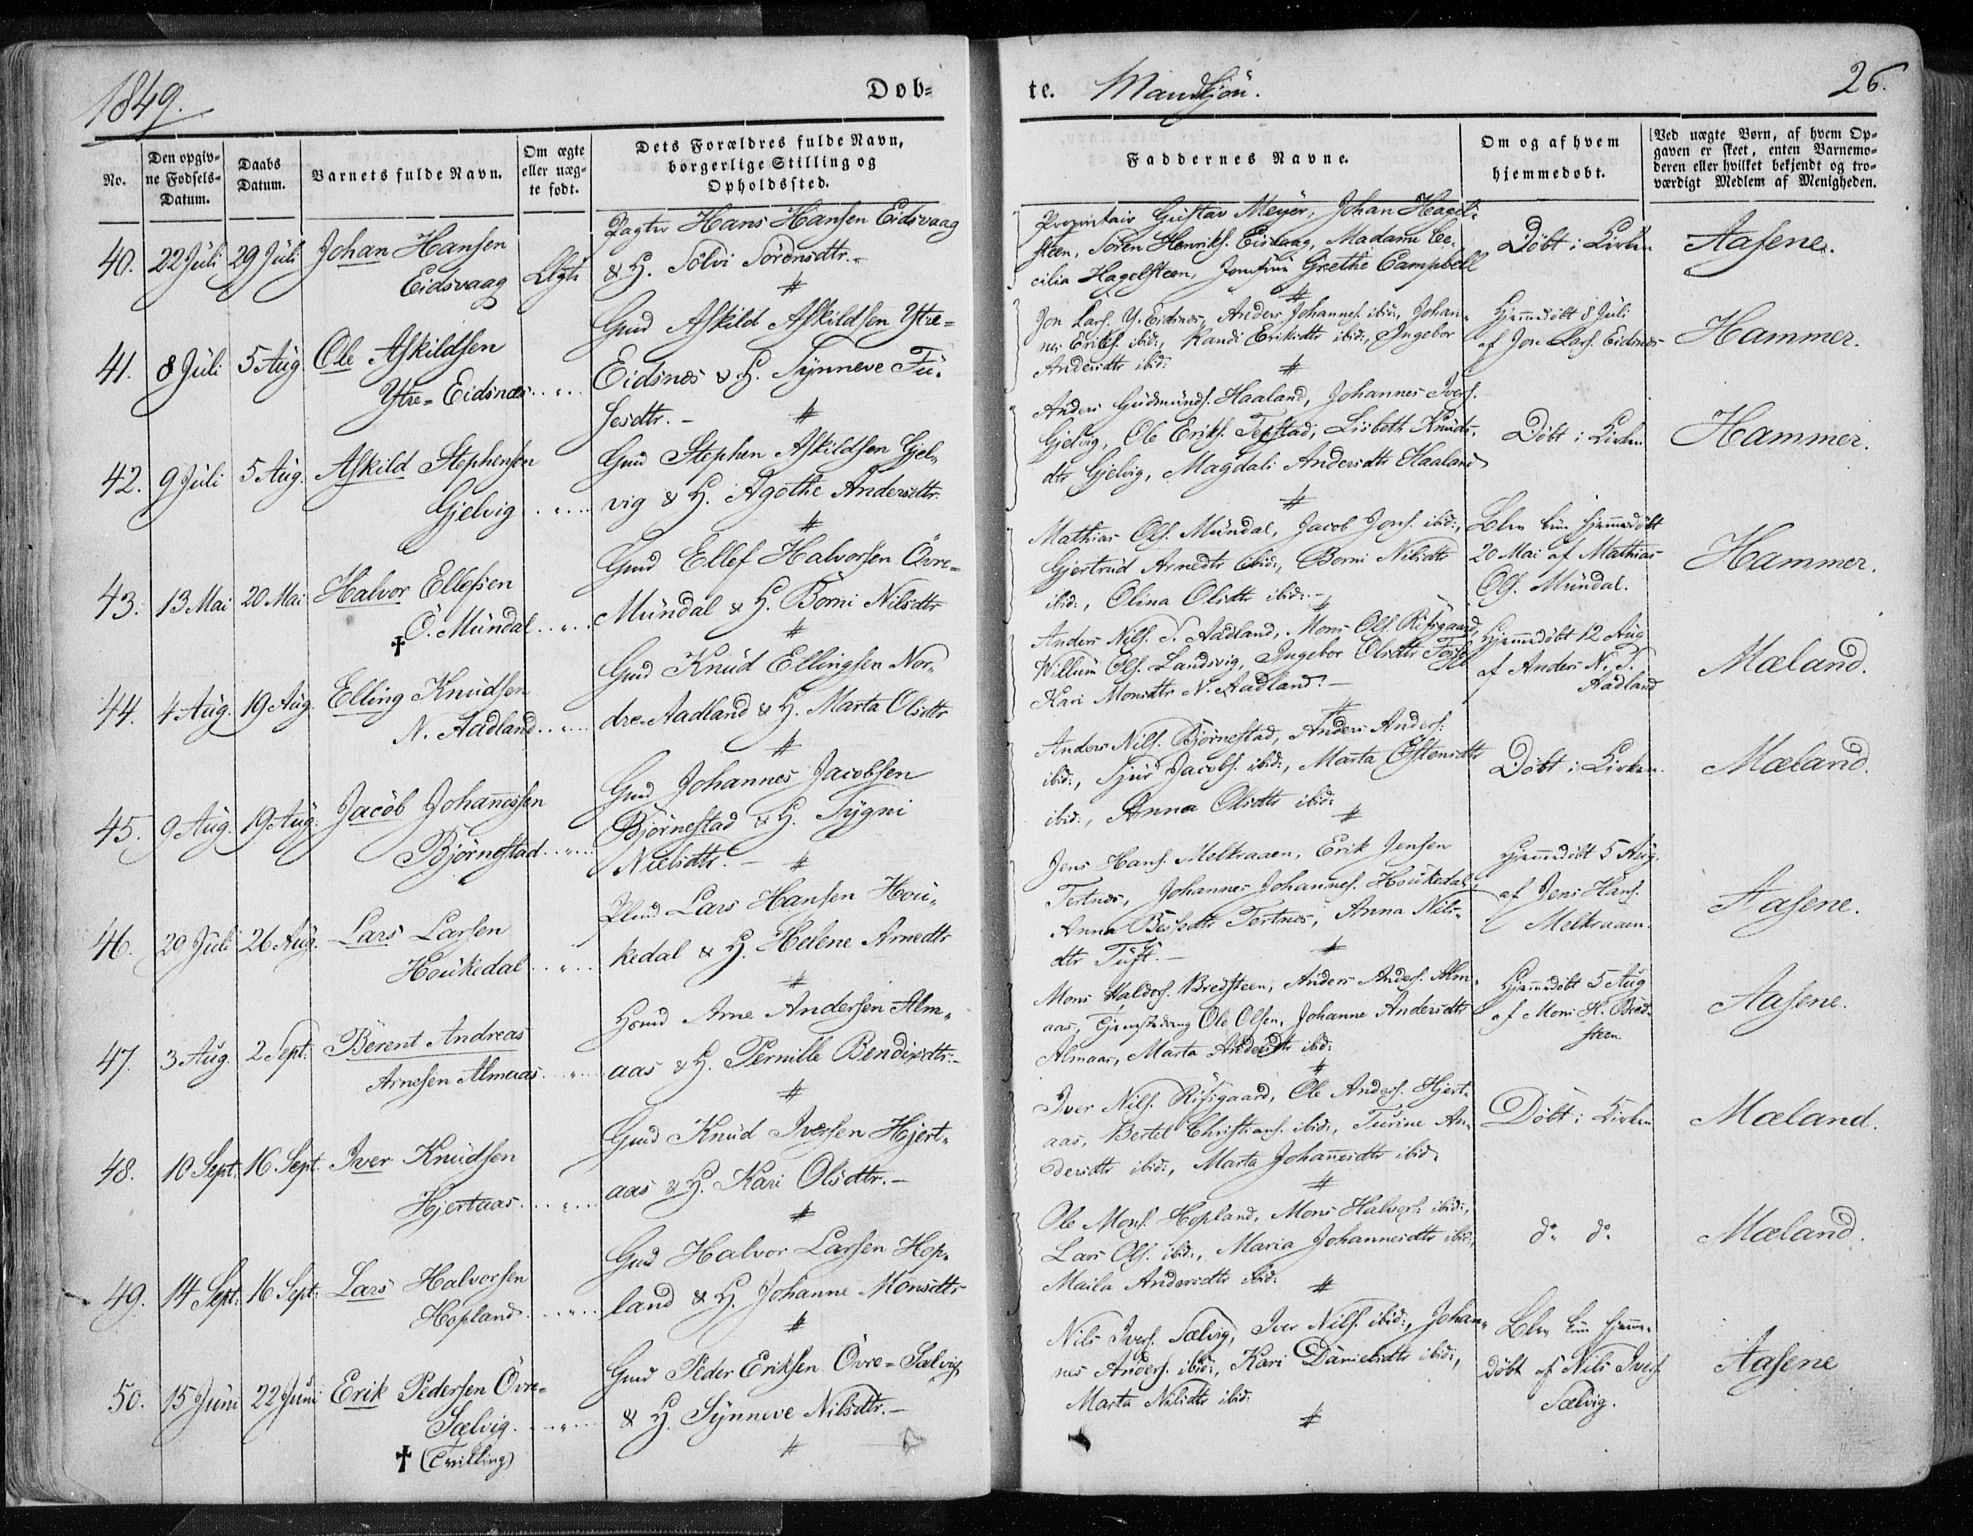 1849.
Døb=
te. Mandkjön.
26.
No.
Den opgiv=
ne Fødsels=
Datum.
Daabs
Datum.
Barnets fulde Navn.
Om ægte
eller uæg=
te født.
Dets Forældres fulde Navn,
borgerlige Stilling og
Opholdssted.
Faddernes Navne.
Om og af hvem
hjemmedøbt.
Ved uægte Børn, af hvem Op=
gaven er skeet, enten Barnemo=
deren eller hvilket bekjendt og tro=
værdigt Medlem af Menigheden.
40. 22 Juli 29 Juli Johan Hansen
Eidsvaag
Hans Hansen Eidsvaag
& H. Sölvi Sörensdtr.-
Gustav Meyer, Johan Hagel=
steen, Sören Henriks. Eidsvaag, Madame Ce=
cilia Hagelsteen, Jomfrue Grethe Campbell
Döbt i Kirken
Aasene.
41. 8 Juli 5 Aug. Ole Askildsen
Ytre=Eidsnæs
Gmd Askild Askildsen Ytre=
Eidsnes & H. Synneve Tü=
fesdtr.-
Jon Lars. Y. Eidsnes, Anders Johannes. ibid:, Johan=
nes Eriks. ibid:, Randi Eriksdtr ibid:, Ingebor
Andersdtr ibid:
Hjemmedöbt 8 Juli
af Jon Lars. Eidsnes
Hammer.
42. 9 Juli 5 Aug. Askild Stephensen
Gjelvig
Gmd Stephen Askildsen Gjel=
vig & H. Agothe Andersdtr.
Anders Gudmunds. Haaland, Johannes Ivers.
Gjelvig, Ole Eriks. Tepstad, Lisbeth Knuds=
dtr Gjelvig, Magdali Andersdtr Haaland
Döbt i Kirken
Hammer.
43. 13 Mai 20 Mai Halvor Ellefsen
Ö. Mundal
†
Gmd Ellef Halvorsen Övre=
Mundal & H. Börni Nilsdtr
Mathias Ols. Mundal, Jacob Jons. ibid:,
Gjertrud Arnedtr ibid:, Borni Nilsdtr
ibid:, Olina Olsdtr ibid:-
Blev kun hjemmedöbt
20 Mai af Mathias
Ols. Mundal.
Hammer.
44. 4 Aug. 19 Aug. Elling Knudsen
N. Aadland
Gmd Knud Ellingsen Nor=
dre-Aadland & H. Marta Olsdtr
Anders Nils. S. Aadland, Mons Ols. Riisgaard,
Willum Ols. Landsvig, Ingebor Olsdtr
Kari Monsdtr N. Aadland.-
Hjemmedöbt 12 Aug
af Anders N. S.
Aadland
Mæland.
45. 9 Aug. 19 Aug. Jacob Johannessen
Björnestad
Gmd Johannes Jacobsen
Björnestad & H. Sygni
Nielsdtr.-
Anders Nils. Björnestad, Anders Anders.
ibid:, Sjur Jacobs. ibid:, Marta Östensdtr
ibid:, Anna Olsdtr ibid:
Döbt i Kirken.
Mæland.
46. 20 Juli 26 Aug. Lars Larsen
Houkedal
Lars Hansen Hou=
kedal & H. Helene Arnedtr
Jens Hans. Melkraaen, Erik Jensen
Tertnes, Johannes Johannes. Houkedal,
Anna Tertnes, Anna Nils=
dtr Tuft.-
Hjemmedöbt 5 Aug.
af Jens Hans.
Melkraaen.
Aasene.
47. 3 Aug. 2 Sept. Berent Andreas
Arnesen Almaas
Arne Andersen Alm=
aas & H. Pernille Bendixdtr.-
Mons Haldors. Bredsteen, Anders Anders. Alm=
aas, Ole Olsen, Johanne Andersdtr
Almaas, Marta Andersdtr ibid:
Hjemmedöbt 5 Aug
af Mons H. Bred=
steen
Aasene.
48. 10 Sept. 16 Sept. Iver Knudsen
Hjertaas
Gmd Knud Iversen Hjert=
aas & H. Kari Olsdtr.-
Iver Nils. Riisgaard, Ole Anders. Hjert=
aas, Bertel Christians. ibid:, Turine An=
dersdtr ibid:, Marta Johannesdtr ibid:
Döbt i Kirken
Mæland.
49. 14 Sept. 16 Sept. Lars Halvorsen
Hopland
Gmd Halvor Larsen Hop=
land & H. Johanne Monsdtr
Ole Mons. Hopland, Mons Halvors. ibid:,
Lars Ols. ibid:, Maria Johannesdtr ibid:,
Maila Andersdtr ibid:
do do
Mæland.
50. 15 Juni 22 Juni Erik Pedersen Övre=
Sælvig
† (Tvilling)
Gmd Peder Eriksen Övre=Sælvig
& H. Synneve Nilsdtr.-
Nils Ivers. Sælvig, Iver Nils. ibid:, Johan=
nes Anders. ibid:, Kari Danielsdtr ibid:,
Marta Nilsdtr ibid:
Blev kun hjemme=
döbt af Nils Ivers.
Sælvig.
Aasene